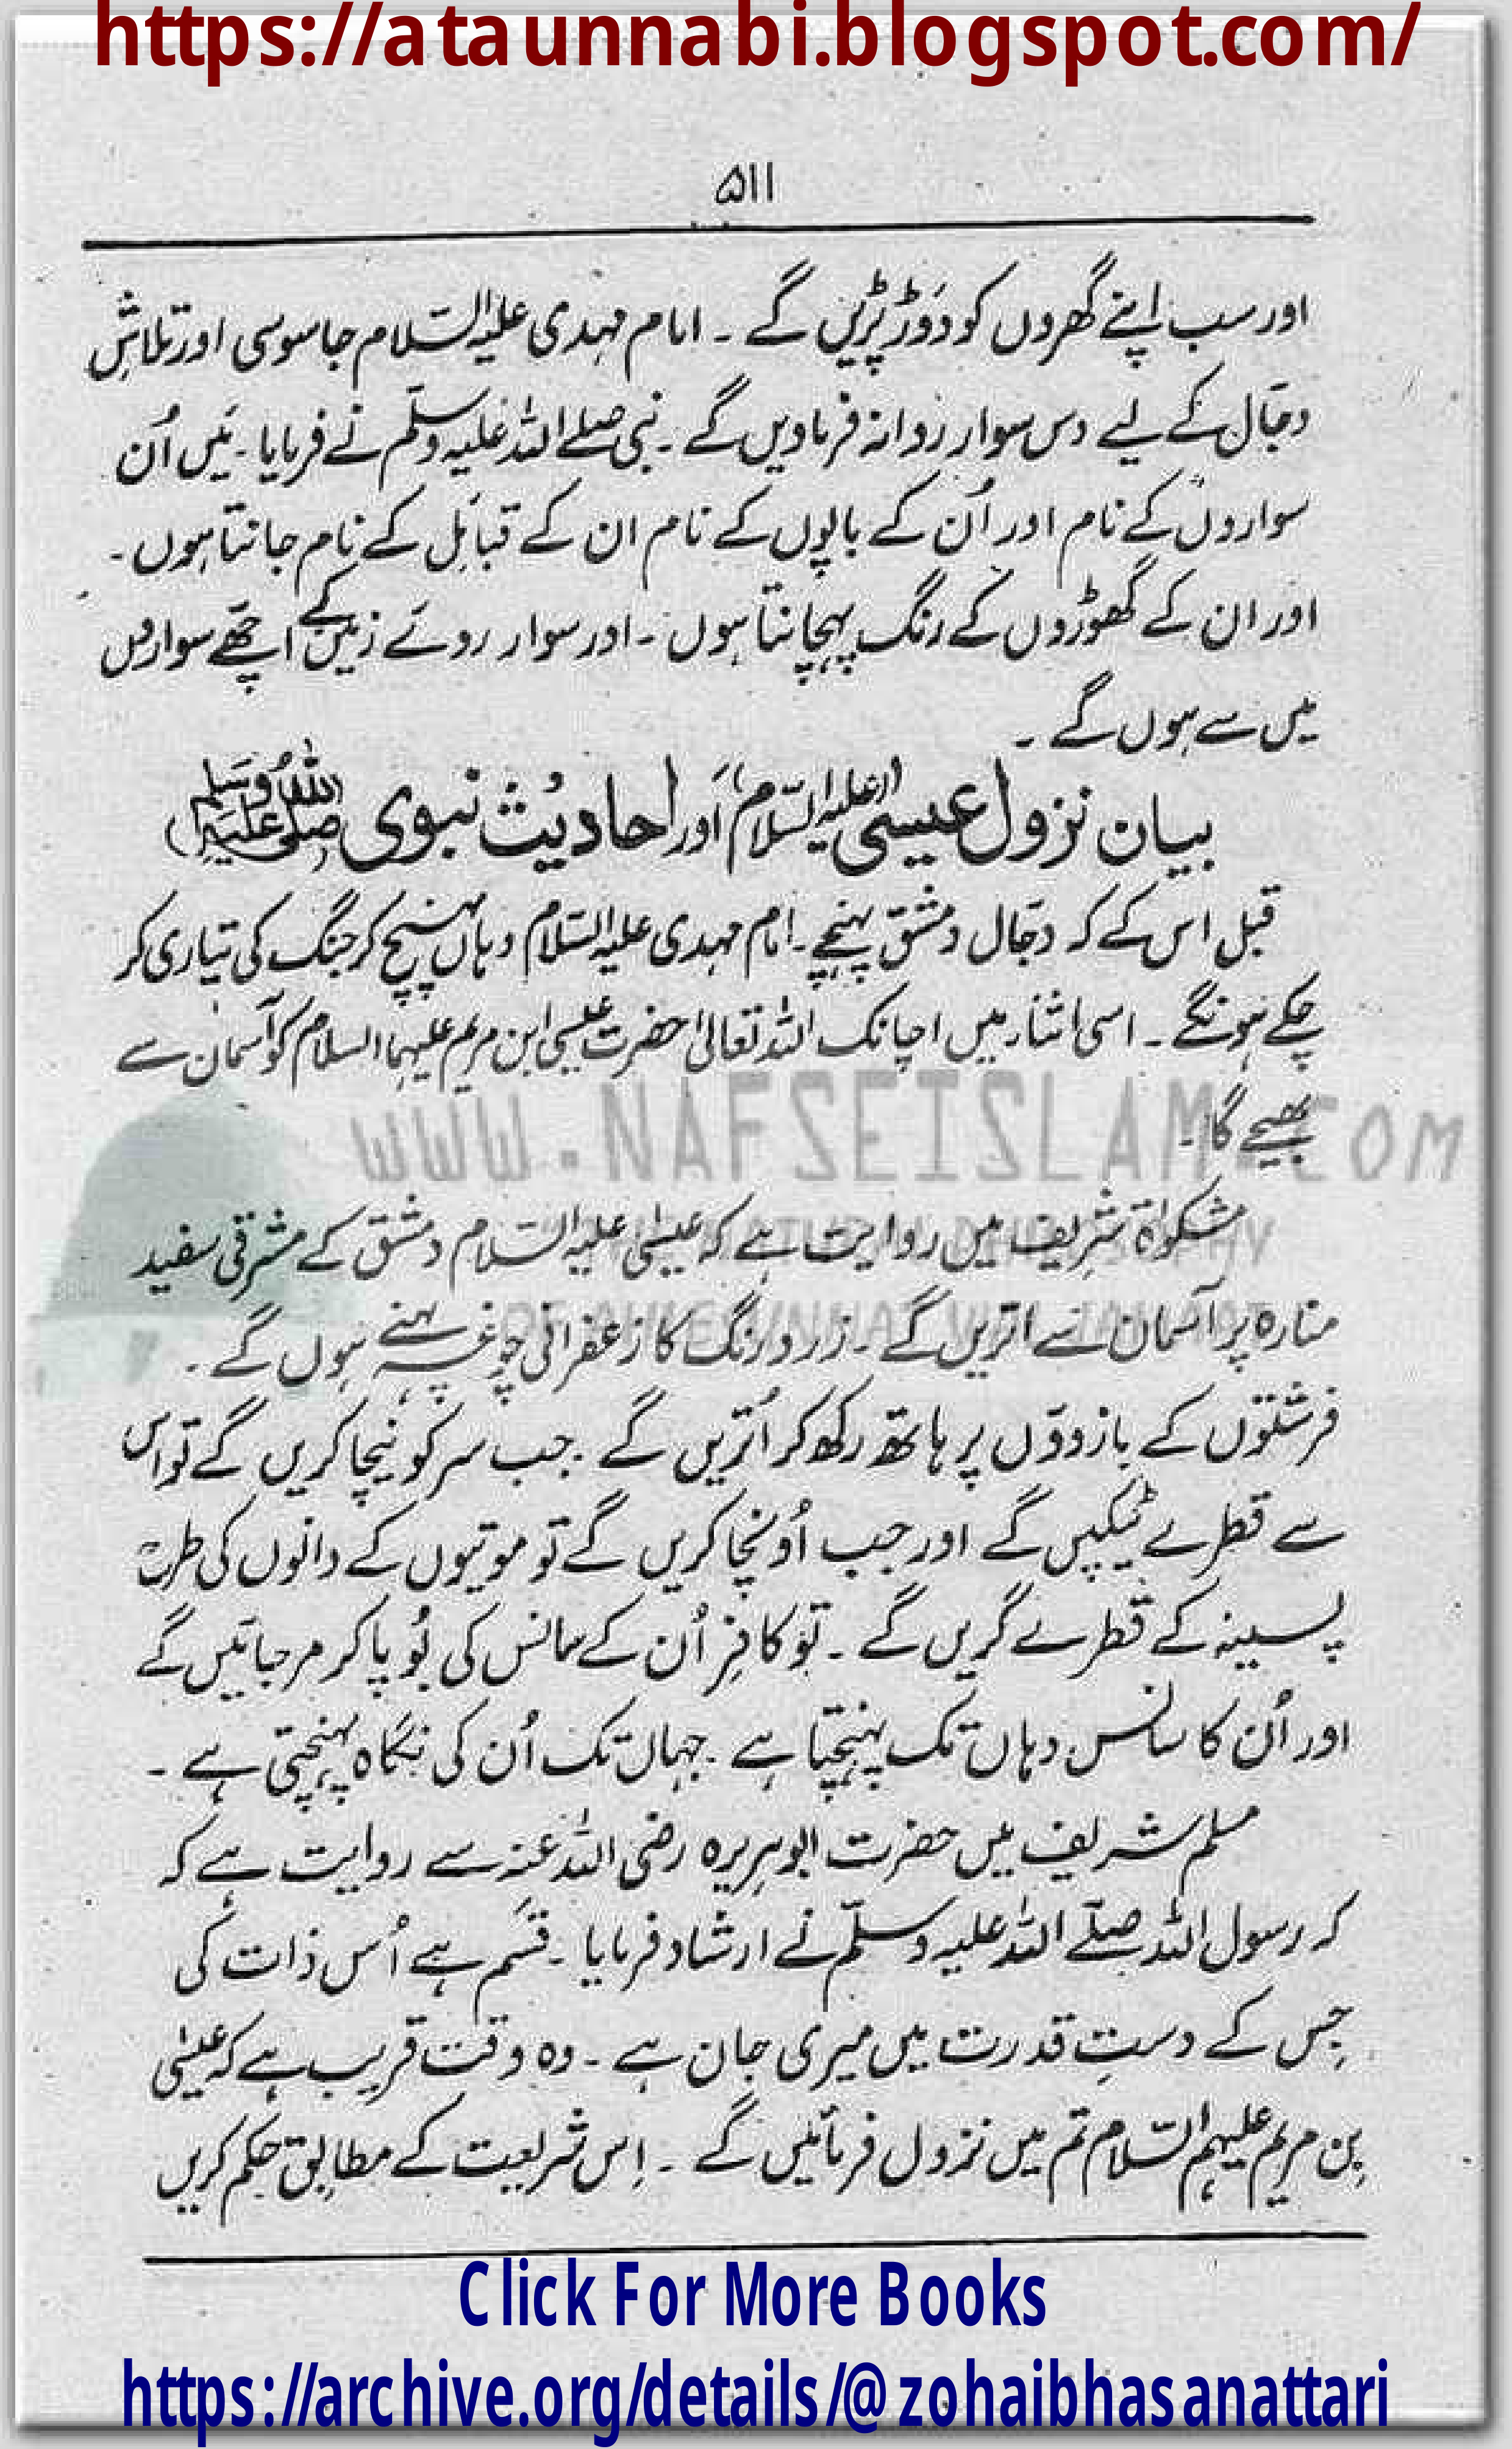 https://ataunnabi.blogspot.com/
۵۱۱
اور سب اپنے گھروں کو دَوڑ پڑیں گے ۔ امام مہدی علیہ السّلام جاسوسی اور تلاشِ
دجّال کے لیے دس سوار روانہ فرماویں گے ۔ نبی صلے اللہ علیہ وسلّم نے فرمایا ۔ مَیں اُن
سواروں کے نام اور اُن کے باپوں کے نام ان کے قبائل کے نام جانتا ہوں ۔
اور ان کے گھوڑوں کے رنگ پہچانتا ہوں ۔ اور سوار روئے زمین کے اچھے سواروں
میں سے ہوں گے ۔
بیان نزول عیسیٰ (علیہ السّلام) اور احادیث نبوی (صلی اللہ علیہ وسلم)
قبل اس کے کہ دجّال دمشق پہنچے ۔ امام مہدی علیہ السّلام وہاں پہنچ کر جنگ کی تیاری کر
چکے ہونگے ۔ اسی اثناء میں اچانک اللہ تعالیٰ حضرت عیسیٰ ابن مریم علیہما السلام کو آسمان سے
بھیجے گا ۔
WWW.NAFSEISLAM.COM
مشکوٰۃ شریف میں روایت ہے کہ عیسٰی علیہ السّلام دمشق کے مشرقی سفید
منارہ پر آسمان سے اتریں گے ۔ زرد رنگ کا زعفرانی چوغہ پہنے ہوں گے ۔
فرشتوں کے بازوؤں پر ہاتھ رکھ کر اُتریں گے ۔ جب سر کو نیچا کریں گے تو اس
سے قطرے ٹپکیں گے اور جب اُونچا کریں گے تو موتیوں کے دانوں کی طرح
پسینہ کے قطرے گریں گے ۔ تو کافِر اُن کے سانس کی بُو پا کر مر جائیں گے
اور اُن کا سانس وہاں تک پہنچتا ہے ۔ جہاں تک اُن کی نگاہ پہنچتی ہے ۔
مسلم شریف میں حضرت ابوہریرہ رضی اللہ عنہ سے روایت ہے کہ
کہ رسول اللہ صلّے اللہ علیہ وسلّم نے ارشاد فرمایا ۔ قسَم ہے اُس ذات کی
جِس کے دستِ قدرت میں میری جان ہے ۔ وہ وقت قریب ہے کہ عیسٰی
بِن مریم علیہم السّلام تم میں نزول فرمائیں گے ۔ اِس شریعت کے مطابق حکم کریں
Click For More Books
https://archive.org/details/@zohaibhasanattari